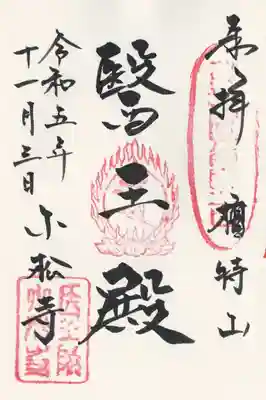 奉拝 檀特山
醫王殿
令和五年
十一月三日 小松寺